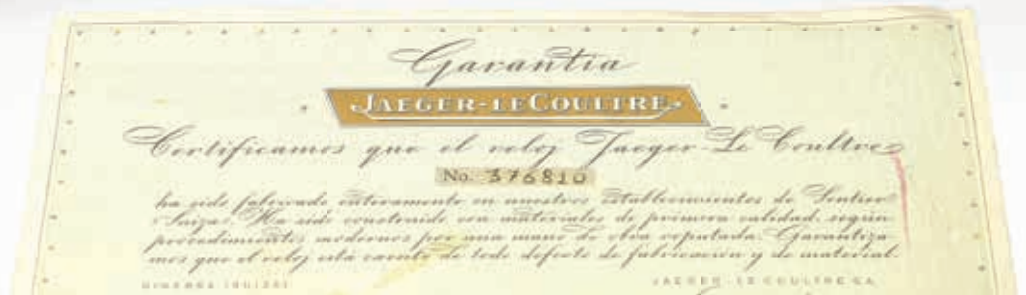 Garantia
JAEGER-LECOULTRE
Certificamos que el reloj Jaeger-Le Coultre
No. 376810
ha sido fabricado enteramente en nuestros establecimientos de Sentier
Suiza. Ha sido construido con materiales de primera calidad, según
procedimientos modernos por una mano de obra reputada. Garantiza-
mos que el reloj está exento de todo defecto de fabricación y de material.
GINEBRA (SUIZA)
JAEGER-LE COULTRE S.A.